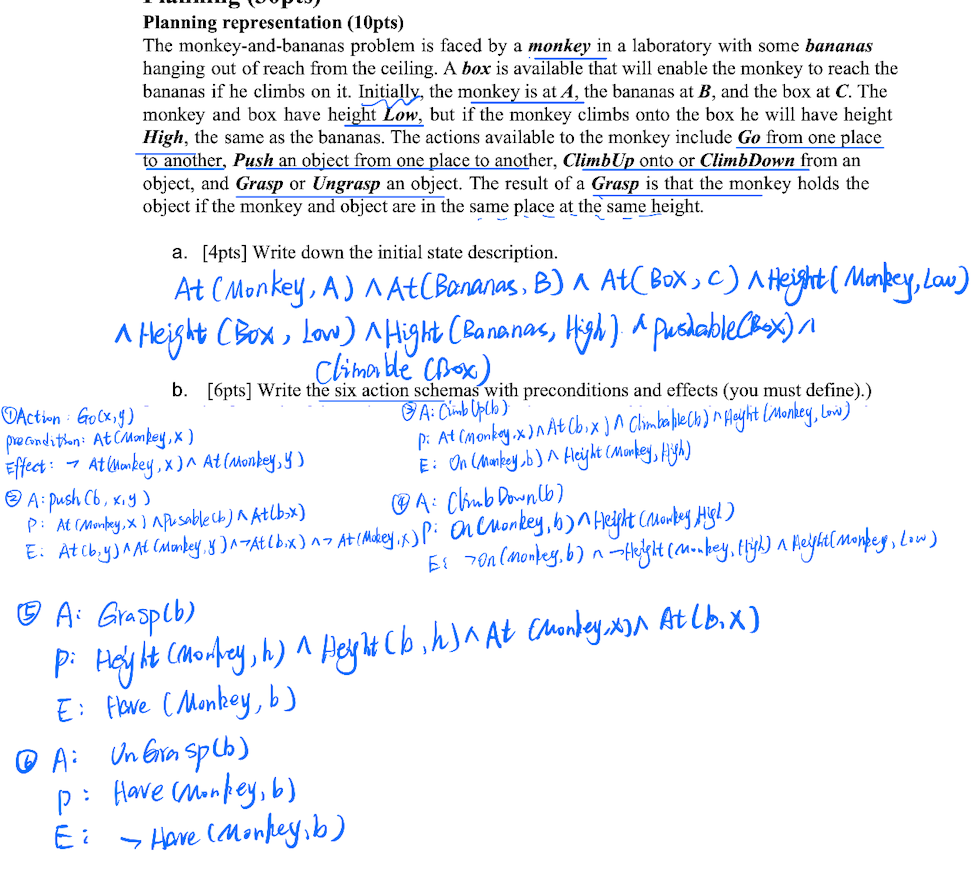 Planning (30pts)
Planning representation (10pts)
The monkey-and-bananas problem is faced by a monkey in a laboratory with some bananas
hanging out of reach from the ceiling. A box is available that will enable the monkey to reach the
bananas if he climbs on it. Initially, the monkey is at A, the bananas at B, and the box at C. The
monkey and box have height Low, but if the monkey climbs onto the box he will have height
High, the same as the bananas. The actions available to the monkey include Go from one place
to another, Push an object from one place to another, ClimbUp onto or ClimbDown from an
object, and Grasp or Ungrasp an object. The result of a Grasp is that the monkey holds the
object if the monkey and object are in the same place at the same height.
a. [4pts] Write down the initial state description.
At (Monkey, A) ∧ At (Bananas, B) ∧ At (Box, C) ∧ Height (Monkey, Low)
∧ Height (Box, Low) ∧ Hight (Bananas, High) ∧ pushable(Box) ∧
Climable (Box)
b. [6pts] Write the six action schemas with preconditions and effects (you must define).)
① Action : Go(x,y)
precondition: At (Monkey, x)
Effect: ¬ At(Monkey, x) ∧ At (Monkey, y)
② A: push (b, x, y)
P: At (Monkey, x) ∧ Pusable(b) ∧ At(b,x)
E: At(b,y) ∧ At (Monkey, y) ∧ ¬At(b,x) ∧ ¬ At(Mokey, x)
③ A: ClimbUp(b)
P: At (Monkey, x) ∧ At(b,x) ∧ Climbable(b) ∧ Height (Monkey, Low)
E: On (Monkey, b) ∧ Height (Monkey, High)
④ A: ClimbDown(b)
P: On (Monkey, b) ∧ Height (Monkey, High)
E: ¬On (Monkey, b) ∧ ¬Height (Monkey, High) ∧ Height(Monkey, Low)
⑤ A: Grasp(b)
P: Height (Monkey, h) ∧ Height (b, h) ∧ At (Monkey, x) ∧ At(b,x)
E: Have (Monkey, b)
⑥ A: UnGrasp(b)
P: Have (Monkey, b)
E: ¬ Have (Monkey, b)